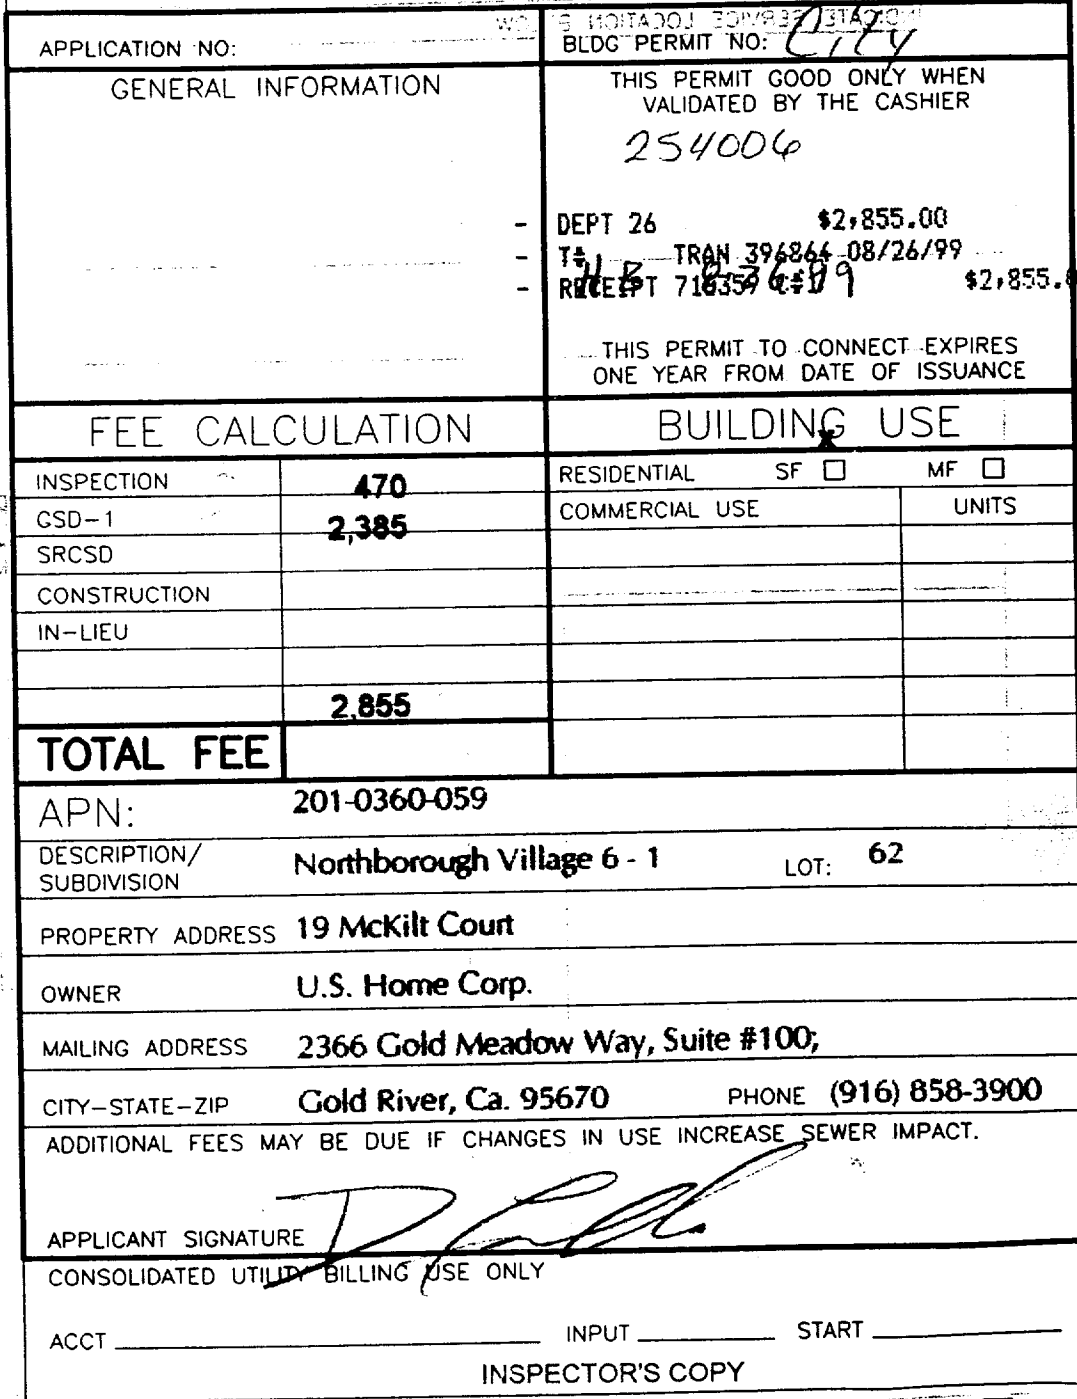 APPLICATION NO:
BLDG PERMIT NO: City
GENERAL INFORMATION
THIS PERMIT GOOD ONLY WHEN
VALIDATED BY THE CASHIER
254006
- DEPT 26 $2,855.00
- T# TRAN 396864 08/26/99
- RECEIPT 716359 C#1 $2,855.
THIS PERMIT TO CONNECT EXPIRES
ONE YEAR FROM DATE OF ISSUANCE
FEE CALCULATION
BUILDING USE
x
INSPECTION 470
RESIDENTIAL SF ☐ MF ☐
CSD-1 2,385
COMMERCIAL USE UNITS
SRCSD
CONSTRUCTION
IN-LIEU
2,855
TOTAL FEE
APN: 201-0360-059
DESCRIPTION/
SUBDIVISION Northborough Village 6 - 1 LOT: 62
PROPERTY ADDRESS 19 McKilt Court
OWNER U.S. Home Corp.
MAILING ADDRESS 2366 Gold Meadow Way, Suite #100;
CITY-STATE-ZIP Gold River, Ca. 95670 PHONE (916) 858-3900
ADDITIONAL FEES MAY BE DUE IF CHANGES IN USE INCREASE SEWER IMPACT.
APPLICANT SIGNATURE
CONSOLIDATED UTILITY BILLING USE ONLY
ACCT INPUT START
INSPECTOR'S COPY